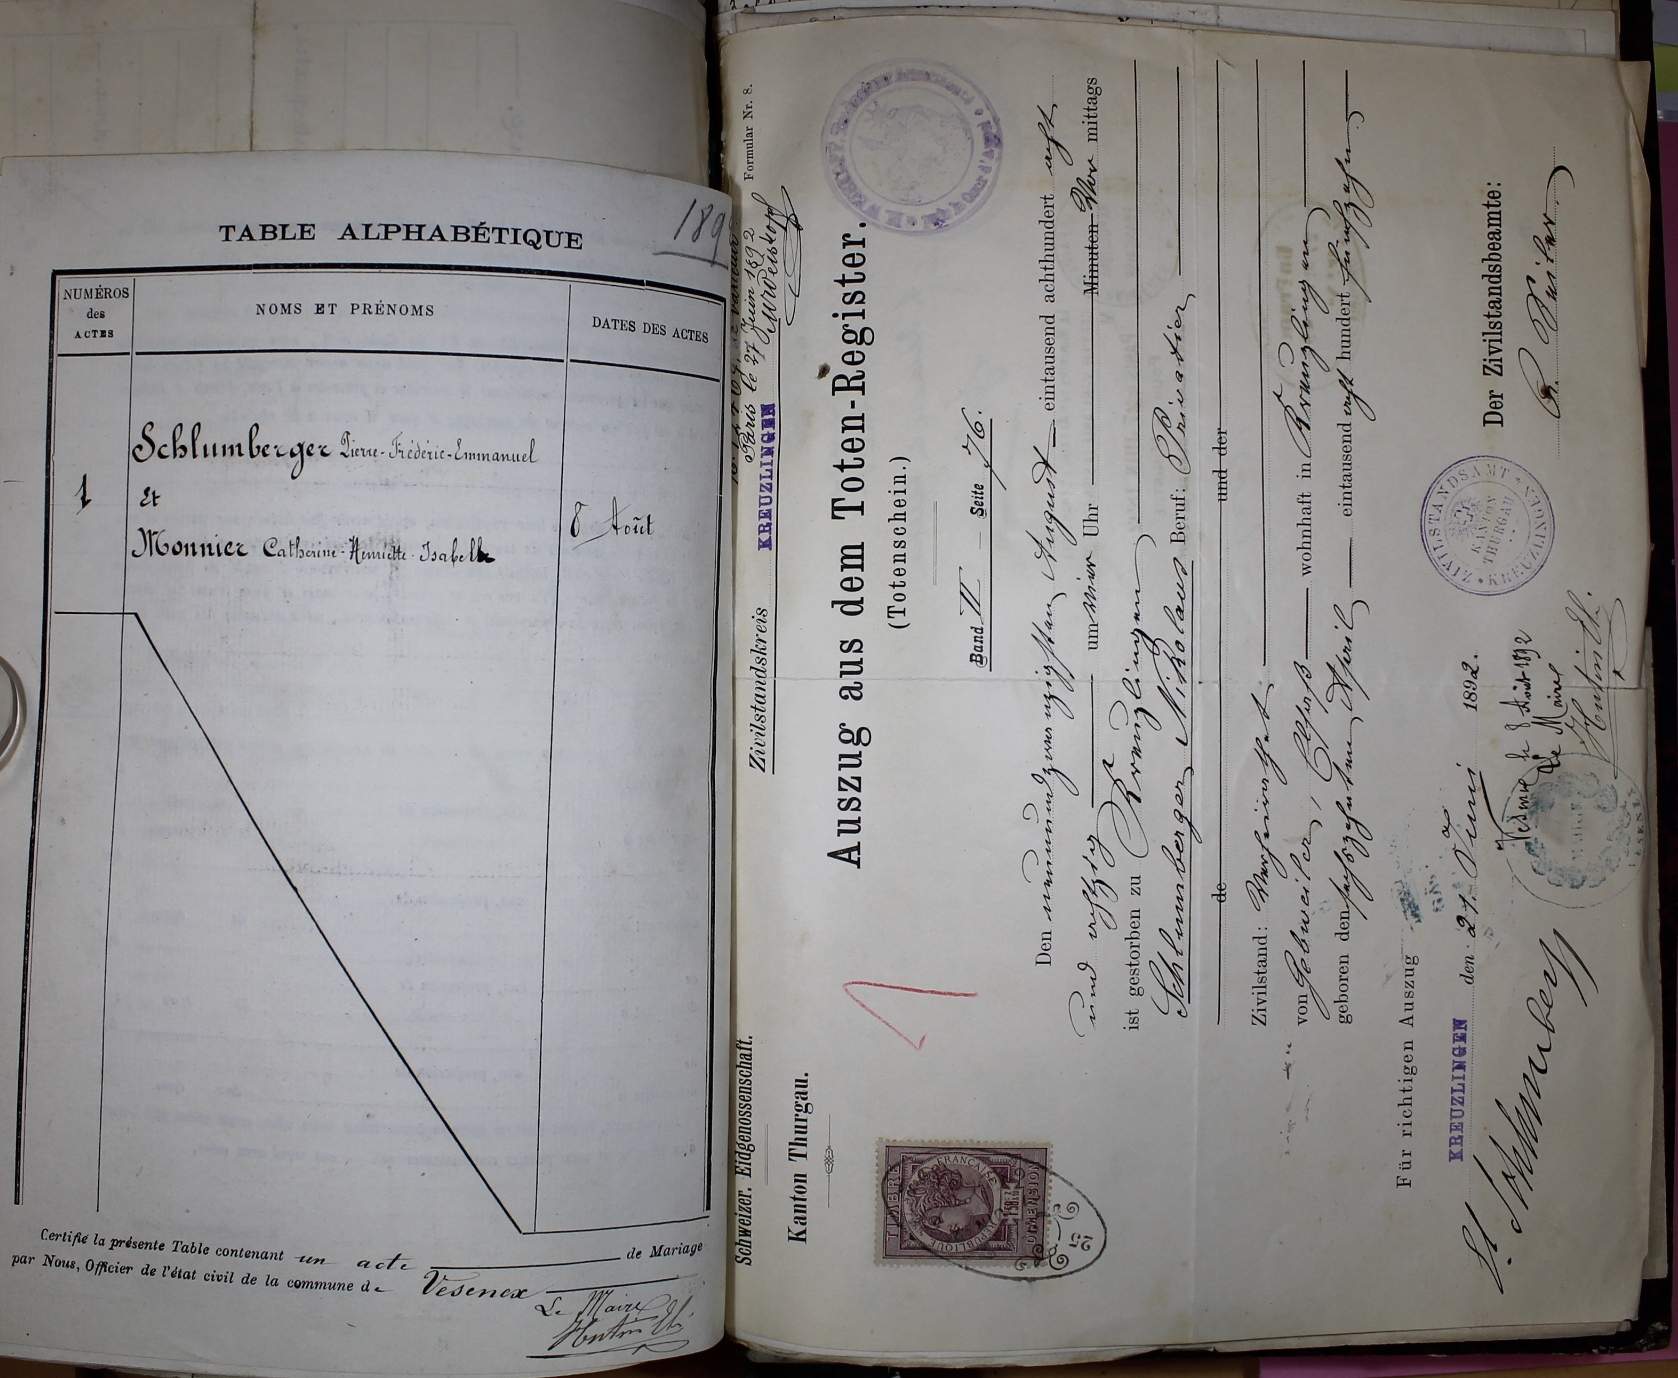 TABLE ALPHABÉTIQUE
189
NUMÉROS des ACTES
NOMS ET PRÉNOMS
DATES DES ACTES
1
Schlumberger Pierre-Frédéric-Emmanuel
Et
Monnier Catherine-Henriette-Isabelle
8 Août
Certifié la présente Table contenant un acte de Mariage
par Nous, Officier de l'état civil de la commune de Vesenex
Le Maire
Paris le 27 Juin 1892
Formular Nr. 8.
Schweizer. Eidgenossenschaft.
Zivilstandskreis
KREUZLINGEN
Kanton Thurgau.
Auszug aus dem Toten-Register.
(Totenschein.)
Band II Seite 76.
Den neunundzwanzigsten August eintausend achthundert acht
und achtzig um vier Uhr Minuten Vor mittags
ist gestorben zu Kreuzlingen
Schlumberger, Nikolaus Beruf: Privatier
de und der
Zivilstand: Verheirathet
von Gebweiler, Elsaß wohnhaft in Kreuzlingen
geboren den sechszehnten April eintausend acht hundert fünfzehn
Für richtigen Auszug
KREUZLINGEN den 21. Juni 1892.
Der Zivilstandsbeamte:
ZIVILSTANDSAMT KREUZLINGEN
KANTON THURGAU
Vesenex le 8 Août 1892
Le Maire
Schlumberger
TIMBRE
RÉPUBLIQUE FRANÇAISE
DIMENSION